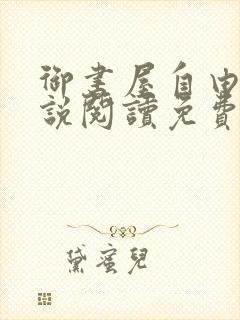 御書屋自由
說閱讀免費
黛蜜兒